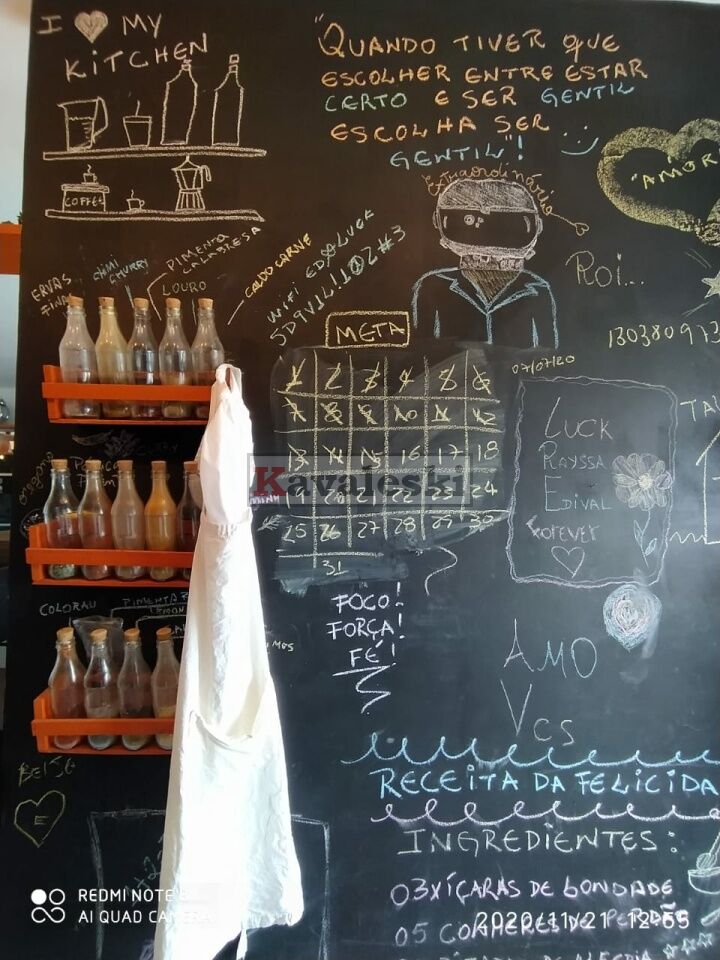 I MY
KITCHEN
COFFEE
"QUANDO TIVER QUE
ESCOLHER ENTRE ESTAR
CERTO E SER GENTIL
ESCOLHA SER
GENTIL"!
Extraordinário
"AMOR
ERVAS
FINAS
CHIMI
CHURRY
PIMENTA
CALABRESA
LOURO
CALDO CARNE
WIFI
ROI...
META
1 2 3 4 5 6
7 8 9 10 11 12
13 14 15 16 17 18
25 26 27 28 29 30
31
07/07/20
LUCK
RAYSSA
EDIVAL
Forever
Kavaleski
oregano
COLORAU
FOCO!
FORÇA!
FÉ!
AMO
VCS
BEISO
E
RECEITA DA FELICIDA
INGREDIENTES:
03 XÍCARAS DE BONDADE
REDMI NOTE 8
AI QUAD CAMERA
2020/11/21 12:55